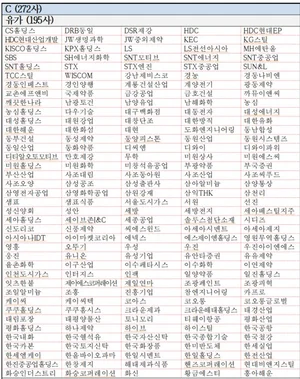 C (272사)
유가 (195사)
CS홀딩스 DRB동일 DSR제강 HDC HDC현대EP
HDC현대산업개발 JW생명과학 JW중외제약 KEC KG스틸
KISCO홀딩스 KPX홀딩스 LS LS전선아시아 MH에탄올
SBS SH에너지화학 SNT모티브 SNT에너지 SNT중공업
SNT홀딩스 STX STX엔진 STX중공업 SUN&L
TCC스틸 WISCOM 강남제비스코 경농 경동나비엔
경동인베스트 경인양행 계룡건설산업 계양전기 광동제약
교촌에프앤비 국제약품 금강공업 금호건설 까뮤이앤씨
깨끗한나라 남광토건 남양유업 남해화학 농심
농심홀딩스 다우기술 대구백화점 대동전자 대성에너지
대성홀딩스 대원강업 대창단조 대한방직 대한유화
대한해운 대한화섬 대현 도화엔지니어링 동남합성
동방 동성제약 동양피스톤 동원산업 동원시스템즈
동일산업 동화약품 디씨엠 디와이 디와이파워
디티알오토모티브 만호제강 무학 미원상사 미원에스씨
미원홀딩스 미원화학 미창석유공업 부광약품 부국증권
부산산업 사조대림 사조동아원 사조산업 사조씨푸드
사조오양 삼성공조 삼성출판사 삼아알미늄 삼양통상
삼영전자공업 삼영화학공업 삼원강재 삼익THK 삼천리
샘표 샘표식품 서울도시가스 서원 선진
성신양회 성안 세방 세방전지 세아베스틸지주
세아홀딩스 세이브존I&C 세종공업 송원산업 시디즈
신도리코 신풍제약 써니전자 아세아시멘트 아세아제지
아시아나IDT 아이마켓코리아 에넥스 에스제이엠홀딩스 영원무역홀딩스
영흥 오뚜기 우성 우진 우진아이엔에스
웅진 유니온 유성기업 유안타증권 유유제약
율촌화학 이구산업 이수페타시스 이수화학 인지컨트롤스
인천도시가스 인터지스 인팩 일양약품 일진홀딩스
잇츠한불 제이에스코퍼레이션 제일연마 조광페인트 조광피혁
조일알미늄 조흥 진흥기업 참엔지니어링 카프로
케이씨 케이씨텍 코아스 코오롱 코오롱글로벌
쿠쿠홀딩스 쿠쿠홈시스 크라운제과 크라운해태홀딩스 태경산업
태림포장 태평양물산 토니모리 티웨이항공 평화산업
평화홀딩스 하나제약 하이브 하이스틸 한국공항
한국내화 한국쉘석유 한국자산신탁 한국종합기술 한국철강
한국카본 한국토지신탁 한국화장품 한미반도체 한샘
한세엠케이 한올바이오파마 한일시멘트 한일홀딩스 한전산업
한진중공업홀딩스 한창제지 해태제과식품 핸즈코퍼레이션 현대비앤지스틸
화승인더스트리 화승코퍼레이션 화신 황금에스티 흥아해운